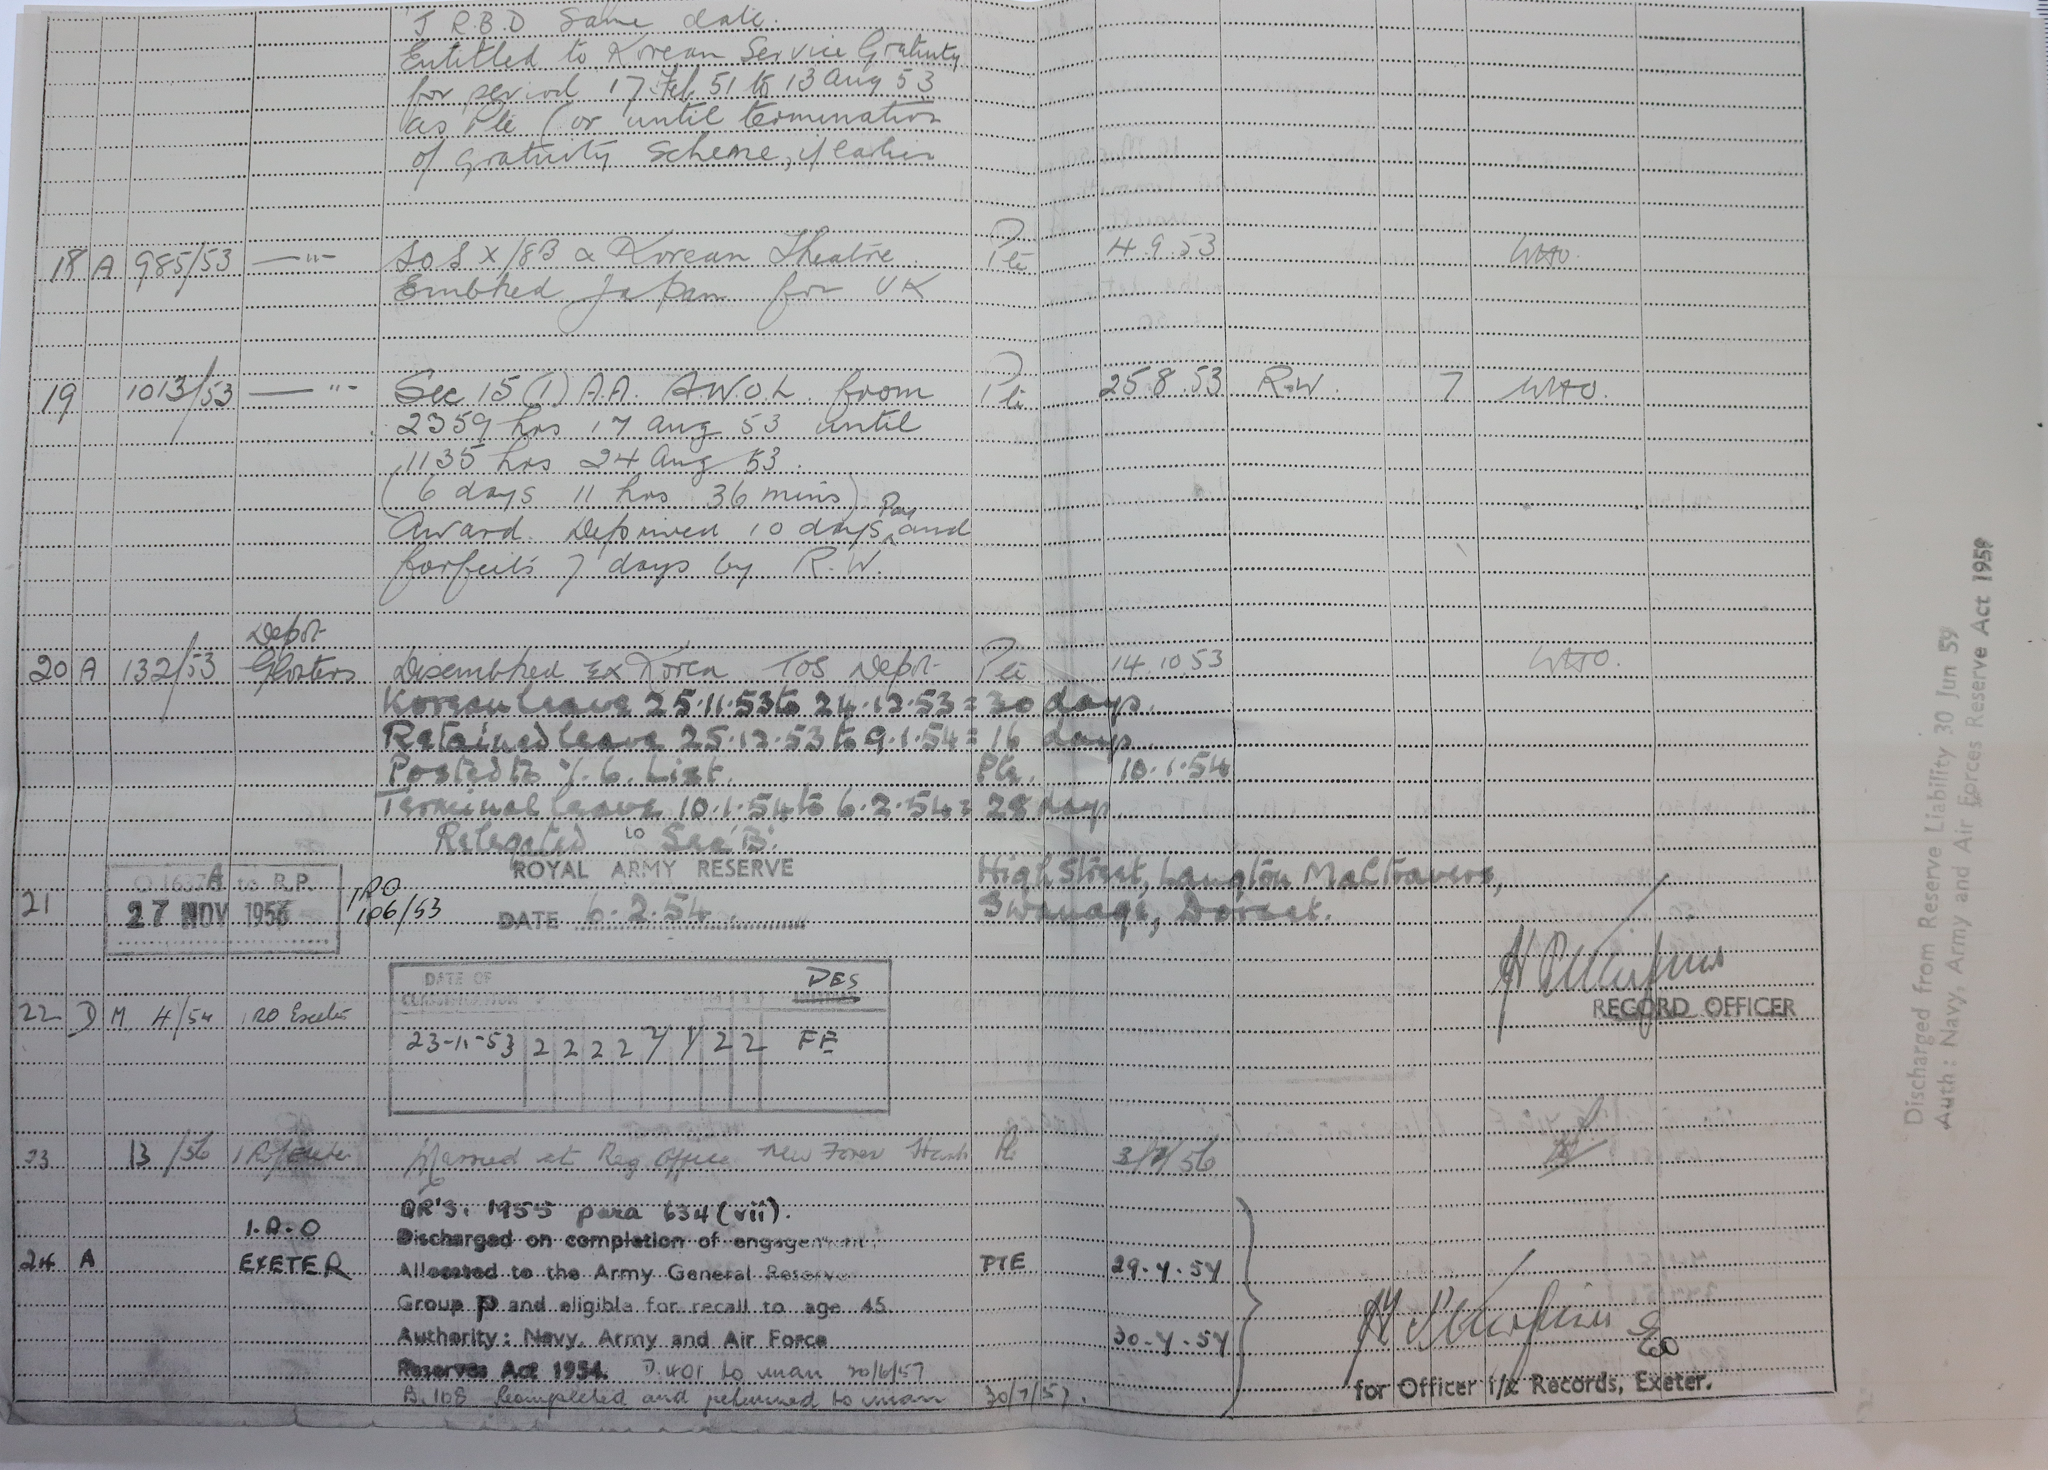 J R.B.D Same date.
Entitled to Korean Service Gratuity
for period 17 Feb 51 to 13 Aug 53
as Pte (or until termination
of gratuity scheme, if earlier
18 A 985/53 —"— SOS X/8B & Korean Theatre. Pte 4.9.53 WHO.
Embked Japan for UK
19 1013/53 —"— Sec 15 (1) A.A. A.W.O.L. from Pte 25.8.53 R.W. 7 WHO.
2359 hrs 17 Aug 53 until
1135 hrs 24 Aug 53.
(6 days 11 hrs 36 mins)
Award. Deprived 10 days Pay and
forfeits 7 days by R.W.
Depot
20 A 132/53 Glosters Disembked Ex Korea TOS Depot Pte 14.10.53 WHO.
Korean leave 25.11.53 to 24.12.53 = 30 days.
Retained leave 25.12.53 to 9.1.54 = 16 days
Posted to List. Pte. 10.1.54
Terminal leave 10.1.54 to 6.2.54 = 28 days
Relegated to Sec 'B'.
ROYAL ARMY RESERVE High Street, Langton Maltravers,
21 A to R.P. 27 NOV 1956 IRO 106/53 DATE 6.2.54. Swanage, Dorset.
RECORD OFFICER
DATE OF CLASSIFICATION DES
22 D M 4/54 IRO Exeter 23-11-53 2 2 2 2 2 2 FE
23 13/56 Married at Reg Office New Forest Hants Pte /56
QR'S. 1955 para 634 (vii).
I.R.O Discharged on completion of engagement.
24 A EXETER Allocated to the Army General Reserve PTE 29.4.57
Group P and eligible for recall to age 45
Authority: Navy, Army and Air Force 30.4.57
Reserves Act 1954. D.401 to man 20/6/57
B.108 completed and returned to man 30/7/57.
for Officer i/c Records, Exeter.
Discharged from Reserve Liability 30 Jun 59
Auth: Navy, Army and Air Forces Reserve Act 1959